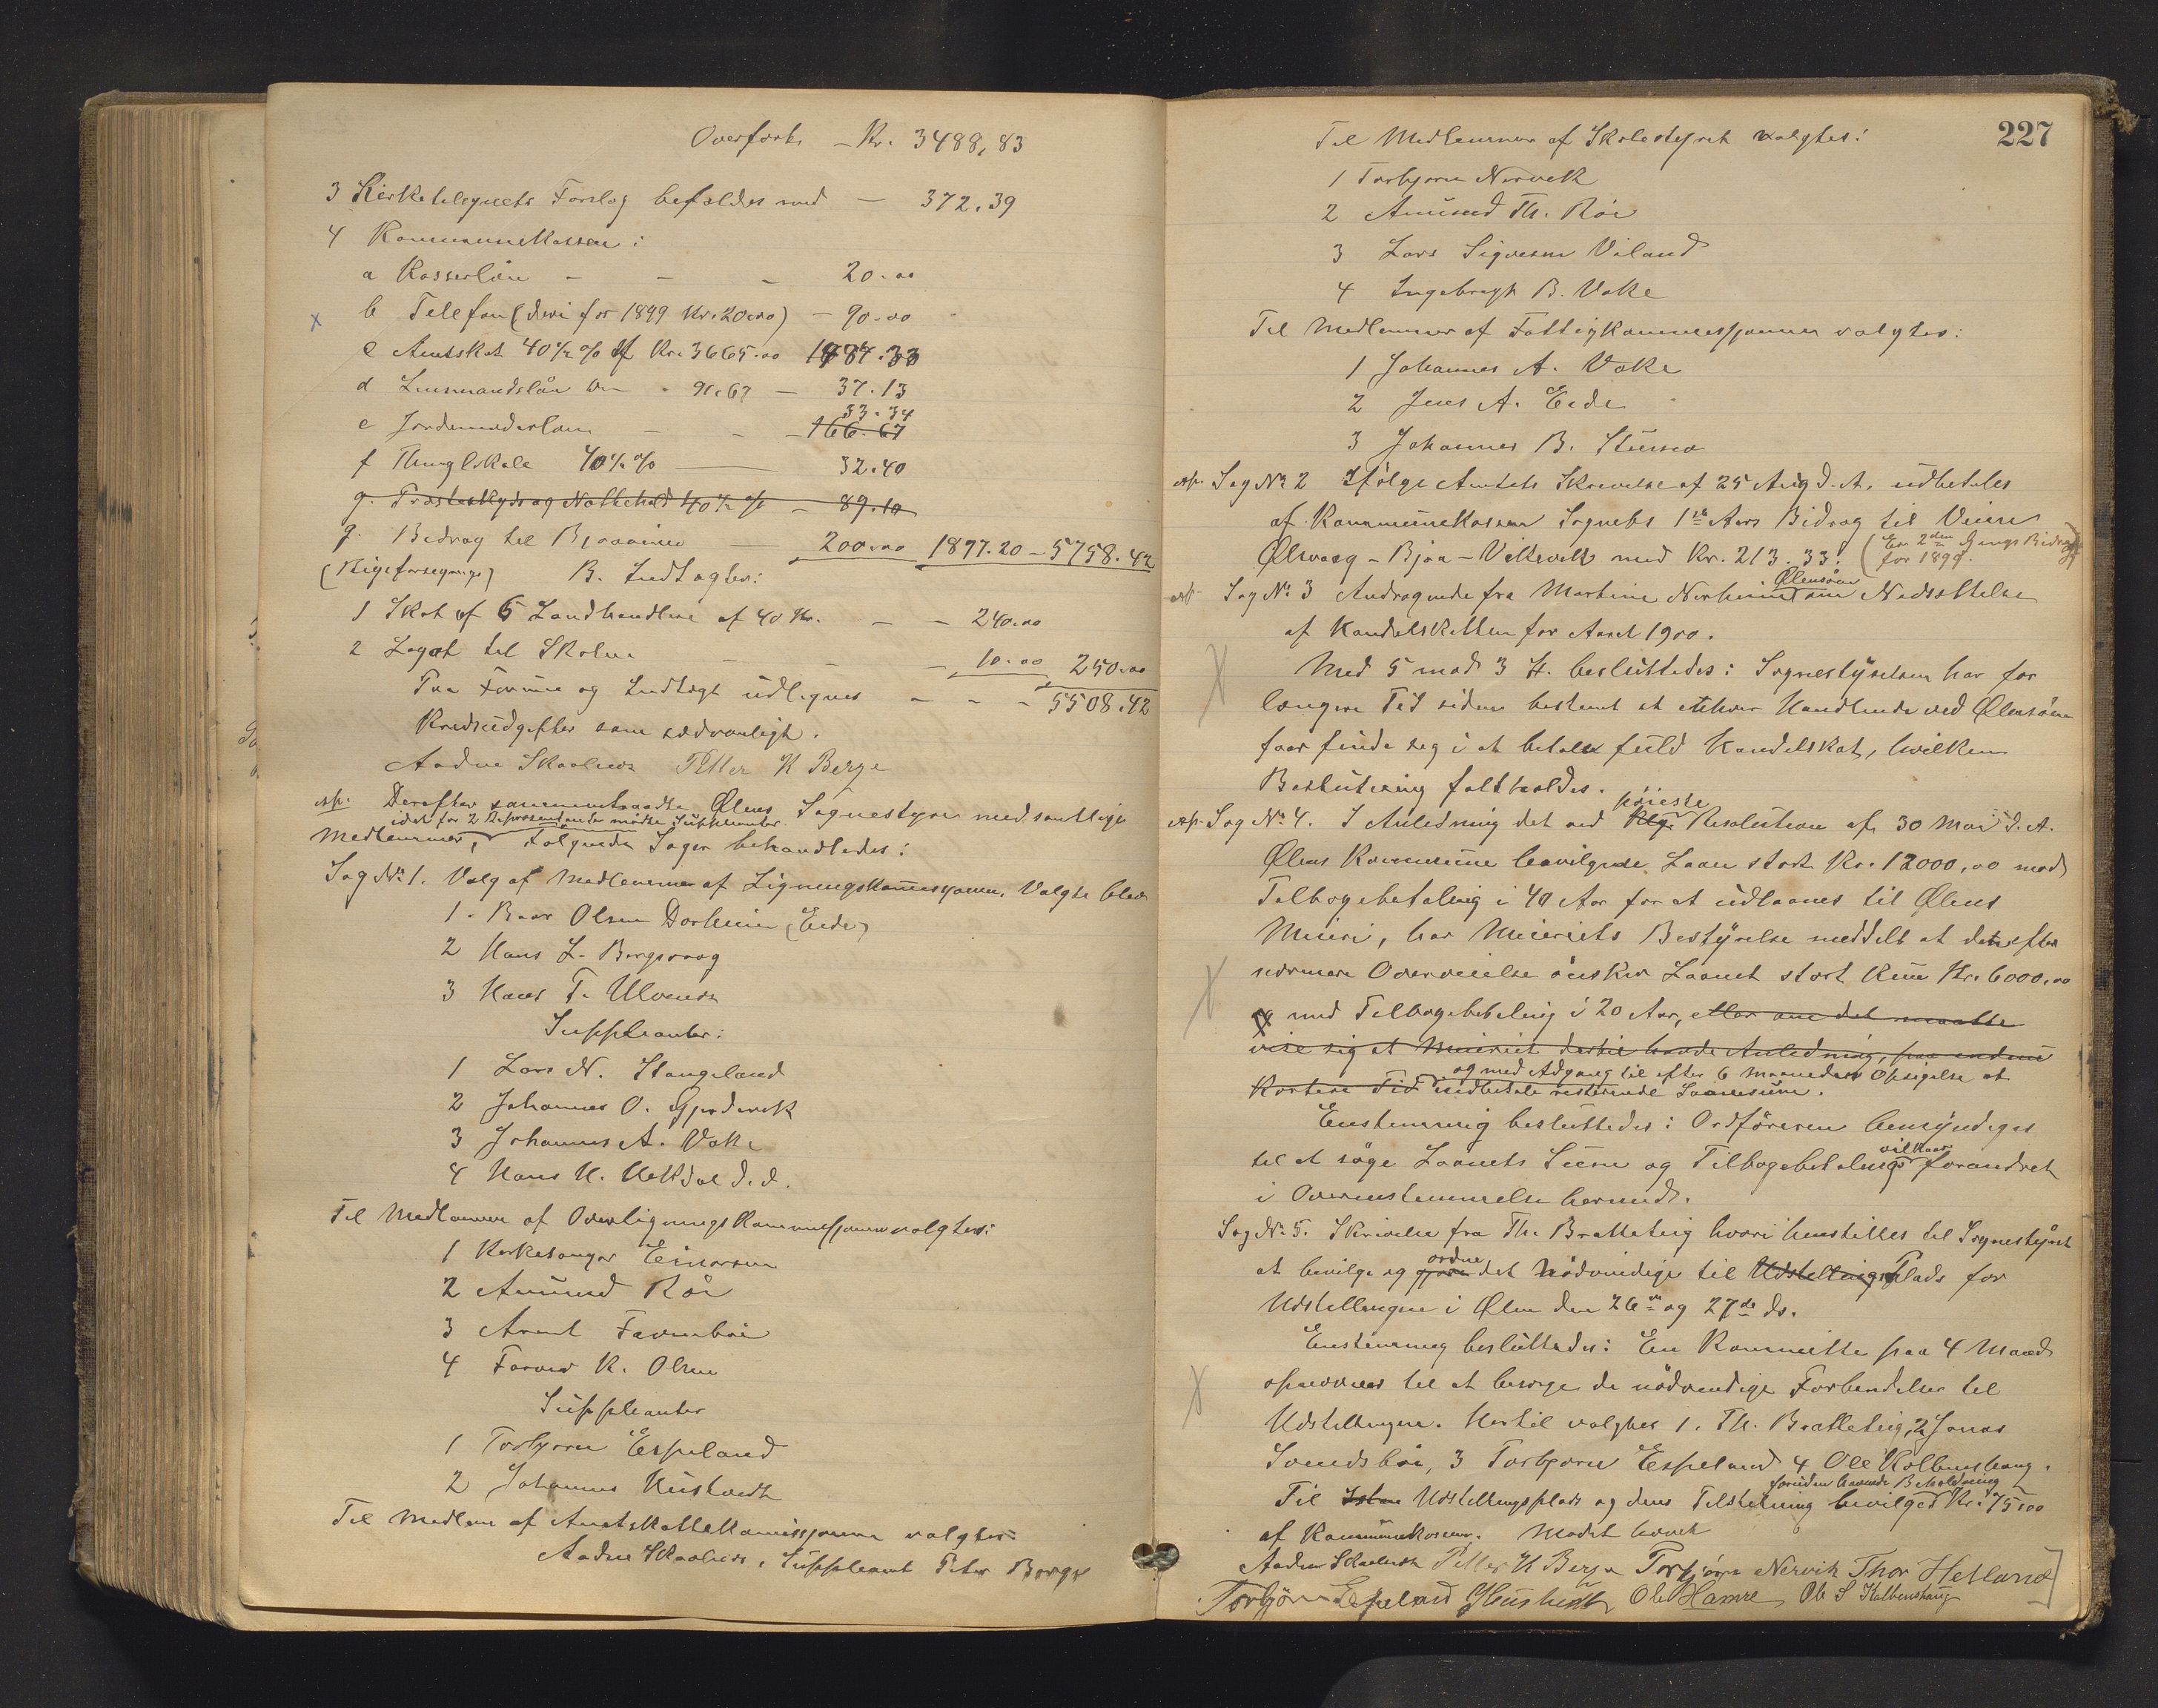 Overført – Kr. 3488,83
3 Kirketilsynets Forslag befaldes med — 372.39
4 Kommunekassen:
a Kasserløn – – – 20.00
x b Telefon (deri for 1899 Kr. 20.00) – 90.00
c Amtskat 40½ % af Kr. 3665.00 1484.33
d Lensmandsløn do – 91.67 — 37.13
e Jordemoderløn – – 33.34
166.67
f Thinglokale 40½ % —— 32.40
g. Præsteskyds og Nattehold 40½ % – 89.10
g. Bidrag til Bjoaveien — 200.00 1897.20 – 5758.42
B. Indtægter:
1 Skat af 6 Landhandlere af 40 Kr. – – 240.00
2 Legat til Skolen – – – 10.00 250.00
Paa Formue og Indtægt udlignes – – – 5508.42
Kredsudgifter som sædvanligt.
Aadne Skaalnes Petter K Berge
exp. Derefter sammentraadte Ølens Sognestyre med samtlige
idet for 2 Repræsentanter mødte Suppleanter
Medlemmer, følgende Sager behandledes:
Sag No 1. Valg af Medlemmer af Ligningskommissjonen. Valgte blev
1. Baar Olsen Dorheim (Eide)
2 Hans L. Bergsvaag
3 Hans T. Ulvenes
Suppleanter:
1 Lars N. Stangeland
2 Johannes O. Gjerdevik
3 Johannes A. Vake
4 Hans H. Hetdal d.e.
Til Medlemmer af Overligningskommissjonen valgtes:
1 Kirkesanger Einarsen
2 Amund Røe
3 Arent Farenbøe
4 Torved K. Olsen
Suppleanter
1 Torbjørn Espeland
2 Johannes Hustvedt
Til Medlem af Amtskattekomissjonen valgtes
Aadne Skaalnes, Suppleant Peter Berge
227
Til Medlemmer af Skolestyret valgtes:
1 Torbjørn Nervik
2 Amund Th. Röe
3 Lars Sigvesen Viland
4 Ingebregt B. Vake
Til Medlemmer af Fattigkommissjonen valgtes:
1 Johannes A. Vake
2 Jens A. Eide
3 Johannes B. Stumo
exp. Sag No 2 Ifølge Amtets Skrivelse af 25 Aug d. A. udbetales
af Kommunekassen Sognets 1ste Aars Bidrag til Veien
Ølsvaag – Bjoa – Vikevik med Kr. 213.33. (En 2den Gangs Bidrag
for 1899.
exp. Sag No 3 Andragende fra Martine Norheim Ølensøen om Nedsættelse
af Handelskatten for Aaret 1900.
Med 5 mod 3 St. besluttedes: Sognestyrelsen har for
længere Tid siden bestemt at enhver Handlende ved Ølensøen
faar finde seg i at betale fuld Handelskat, hvilken
Beslutning fastholdes.
høieste
exp. Sag No 4. I Anledning det ved Kgl. Resolution af 30 Mai d. A.
Ølens Kommune bevilgede Laan stort Kr. 12000,00 mod
Tilbagebetaling i 40 Aar for at udlaanes til Ølens
Meieri, har Meieriets Bestyrelse meddelt at det efter
nærmere Overveielse ønsker Laanet stort kun Kr. 6000,00
og med Tilbagebetaling i 20 Aar, eller om det maatte
vise sig at Meieriet dertil havde Anledning, paa endnu
og med Adgang til efter 6 Maaneders Opsigelse at
kortere Tid indbetale resterende Laanesum.
Enstemmig besluttedes: Ordføreren bemyndiges
til at søge Laanets Sum og Tilbagebetalings vilkaar forandret
i Overensstemmelse hermed.
Sag No 5. Skrivelse fra Th. Bratteteig hvori henstilles til Sognestyret
at bevilge og gjøre ordne det nødvendige til Udstillings Plads for
Udstillingen i Ølen den 26de og 27de ds.
Enstemmig besluttedes: En Kommitte paa 4 Mænd
opnævnes til at besørge de nödvendige Forberedelser til
Udstillingen. Hertil valgtes 1. Th. Bratteteig, 2 Jonas
Svendsbøe, 3 Torbjørn Espeland 4 Ole Kolbenshaug.
foruden havende Beholdning
Til Udstillingsplads og dens Tilstelning bevilges Kr. 75,00
af Kommunekassen. Mødet hævet
Aadne Skaalnes Petter K Berge Torbjørn Nervik Thor Hetland
Torbjørn Espeland JHustvedt Ole Hamre Ole S Kolbenshaug